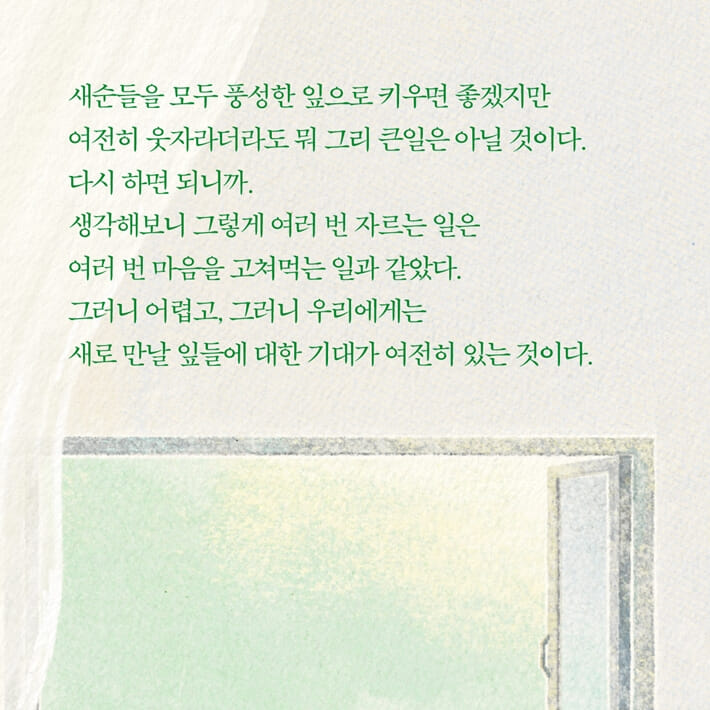 새순들을 모두 풍성한 잎으로 키우면 좋겠지만
여전히 웃자라더라도 뭐 그리 큰일은 아닐 것이다.
다시 하면 되니까.
생각해보니 그렇게 여러 번 자르는 일은
여러 번 마음을 고쳐먹는 일과 같았다.
그러니 어렵고, 그러니 우리에게는
새로 만날 잎들에 대한 기대가 여전히 있는 것이다.